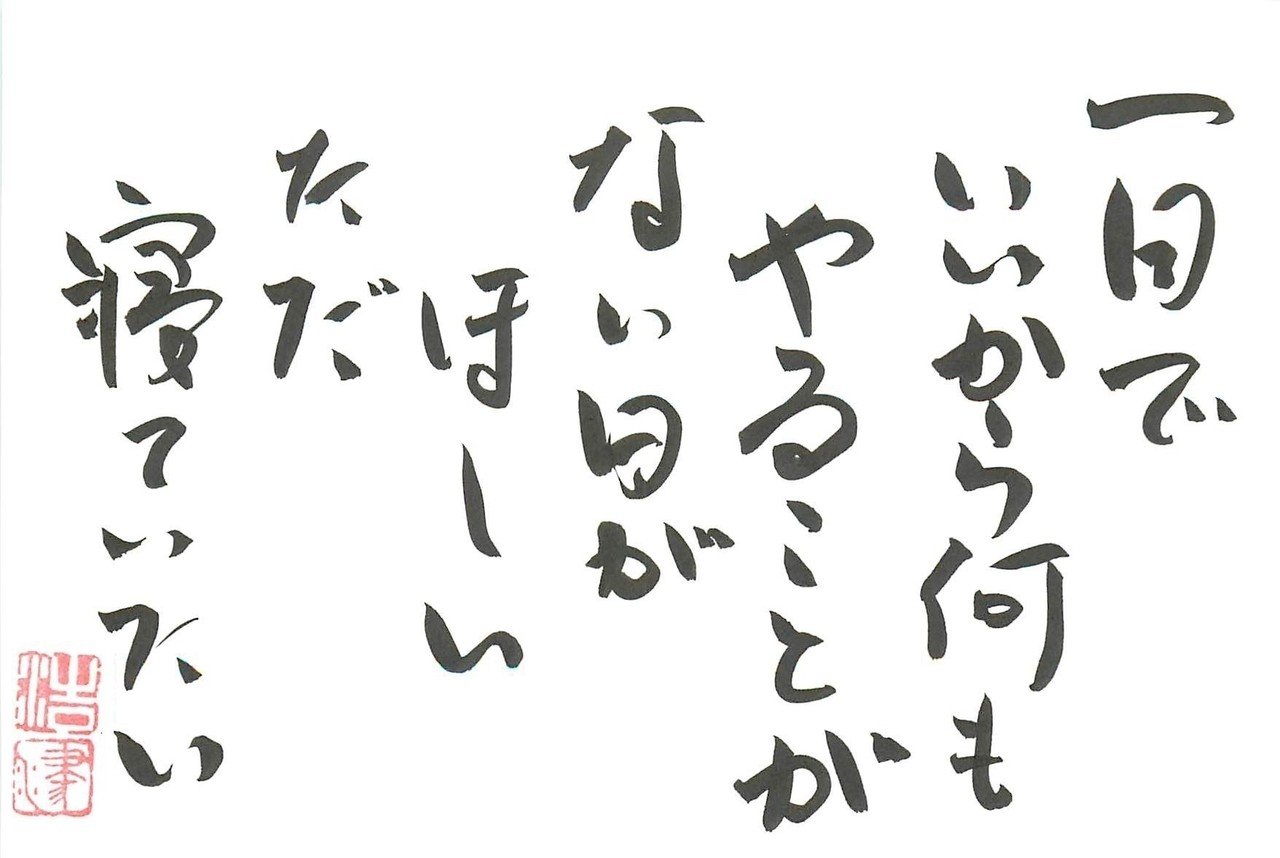 一日で
いいから何も
やることが
ない日が
ほしい
ただ
寝ていたい
浩健